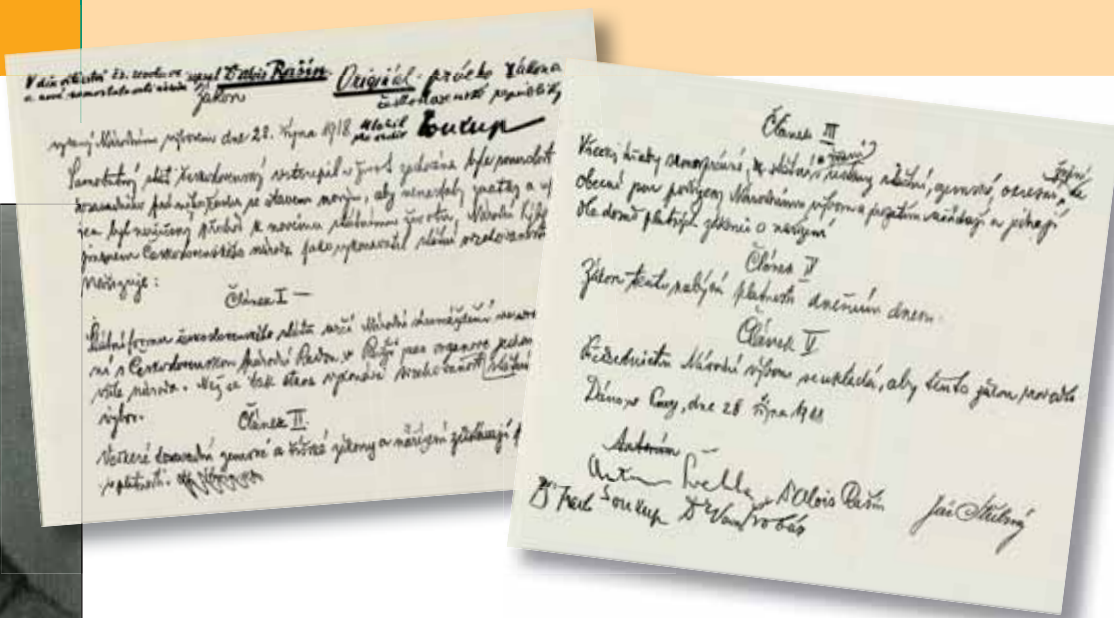 sepsal Dr Alois Rašín. Originál prvého zákona
československé republiky
Zákon
vydaný Národním výborem dne 28. října 1918 Uložil Soukup
Samostatný stát československý vstoupil v život. Aby zachována byla souvislost
dosavadního právního řádu se stavem novým, aby nenastaly zmatky a
byl nerušený přechod k novému státnímu životu, Národní výbor
jménem československého národa jako vykonavatel státní svrchovanosti
nařizuje:
Článek I —
Státní formu československého státu určí Národní shromáždění
s Československou Národní Radou v Paříži
vůle národa. Než se tak stane vykonává svrchovanost státní
výbor.
Článek II.
Veškeré dosavadní zemské a říšské zákony a nařízení zůstávají
v platnosti.
Článek III
Všecky úřady samosprávné, státní, zemské, okresní,
obecné jsou podřízeny Národnímu výboru a prozatím úřadují a jednají
dle dosud platných zákonů a nařízení
Článek IV
Zákon tento nabývá platnosti dnešním dnem.
Článek V
Předsednictvu Národní výboru se ukládá, aby tento zákon provedlo
Dáno v Praze, dne 28 října 1918
Antonín —
Antonín Švehla Dr Alois Rašín Jiří Stříbrný
Dr Soukup Dr Vavro Šrobár